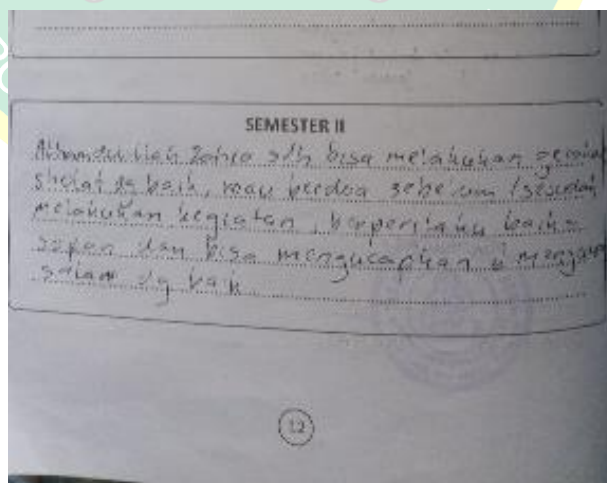 SEMESTER II
Alhamdulillah Zahra sdh bisa melakukan gerakan
sholat dg baik, mau berdoa sebelum / sesudah
melakukan kegiatan, berperilaku baik,
sopan dan bisa mengucapkan &
salam dg baik
12